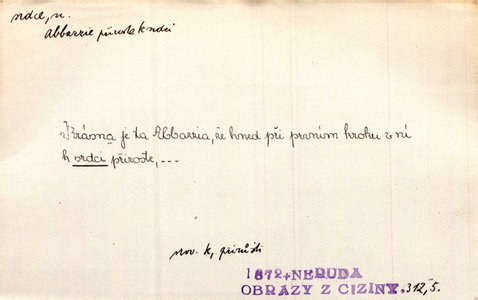 srdce, n.
Abbazzie přiroste k srdci
Krásna je ta Abbazzia, že hned při prvním kroku v ní
k srdci přiroste, ---
nov. k, přirůsti
1872+NERUDA
OBRAZY Z CIZINY.312,5.